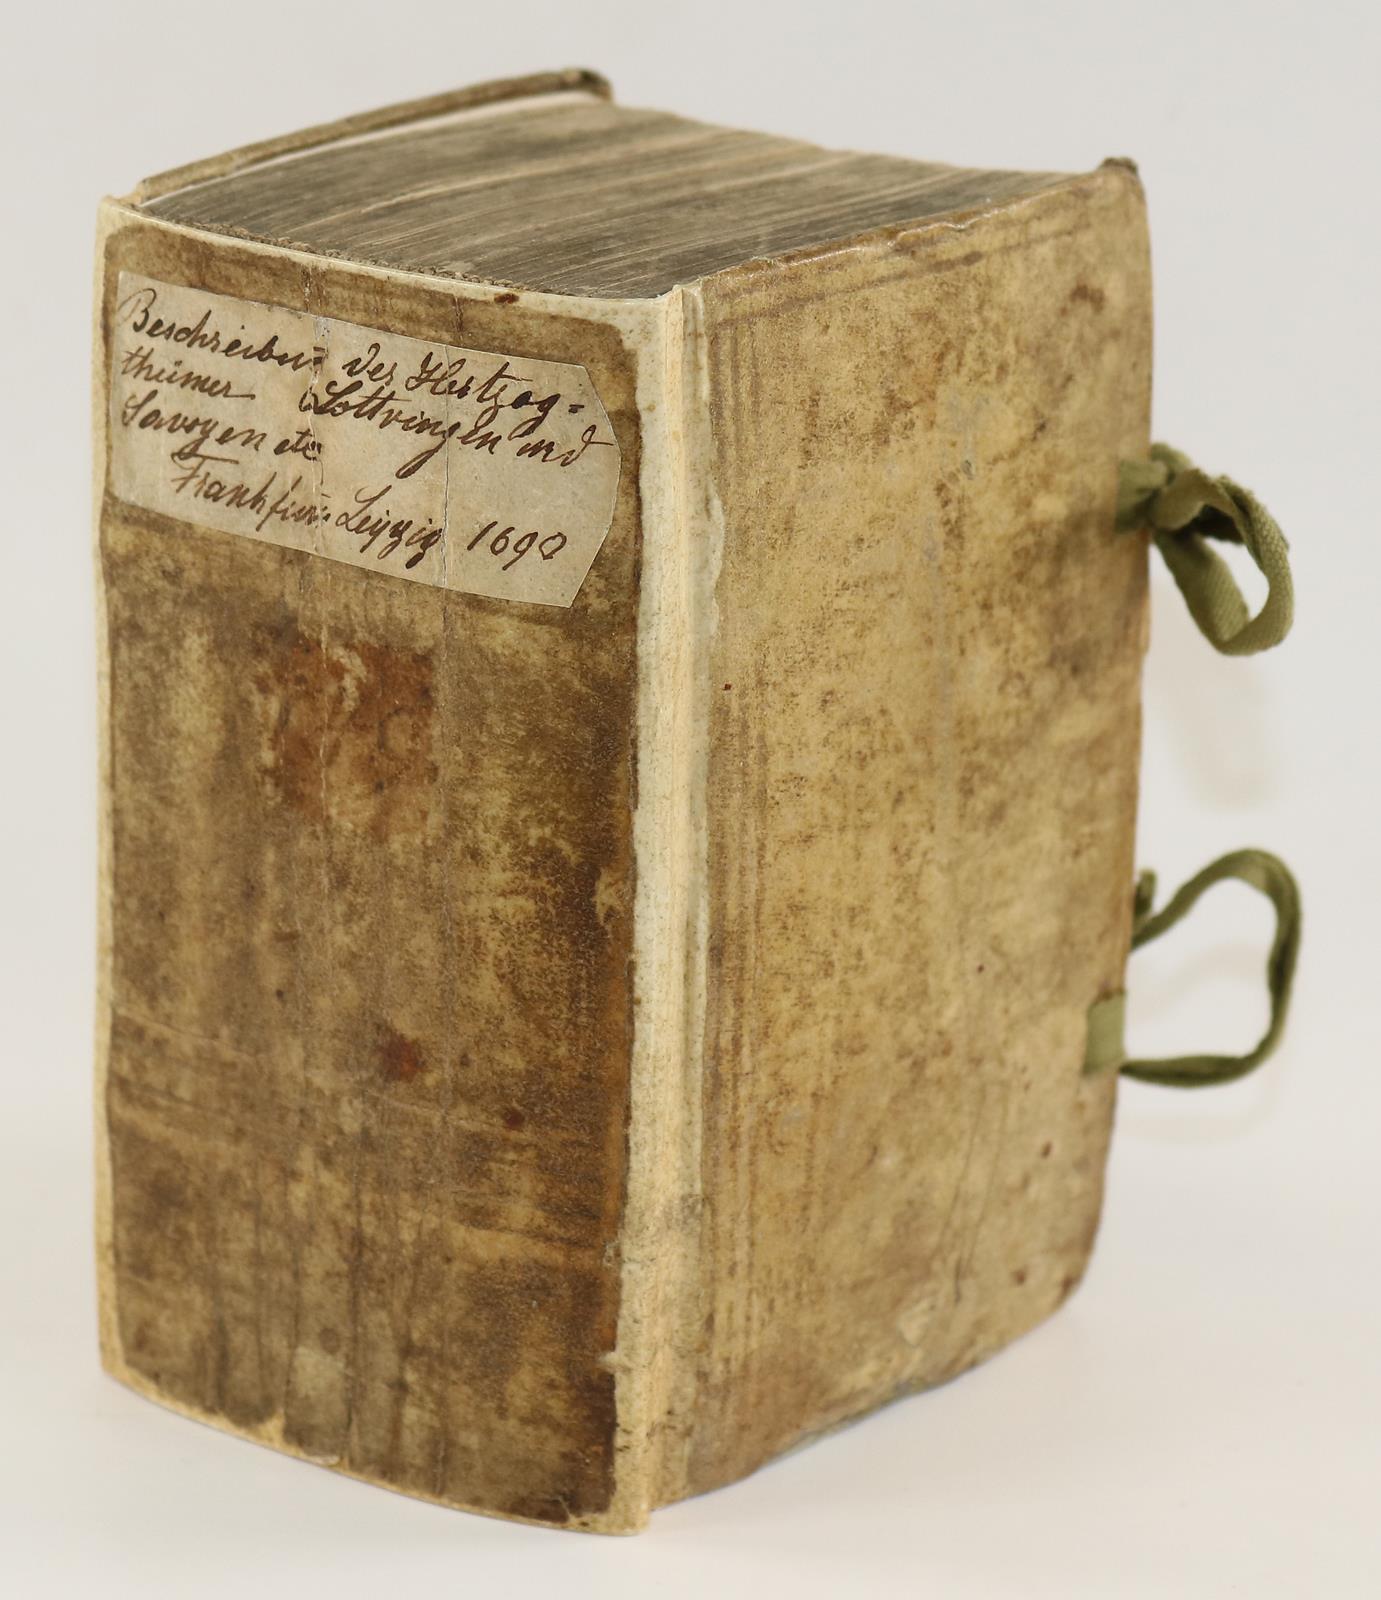 Beschreibu= der Hertzog=
thümer Lottringen und
Savoyen etc
Frankfu= Leipzig 1690